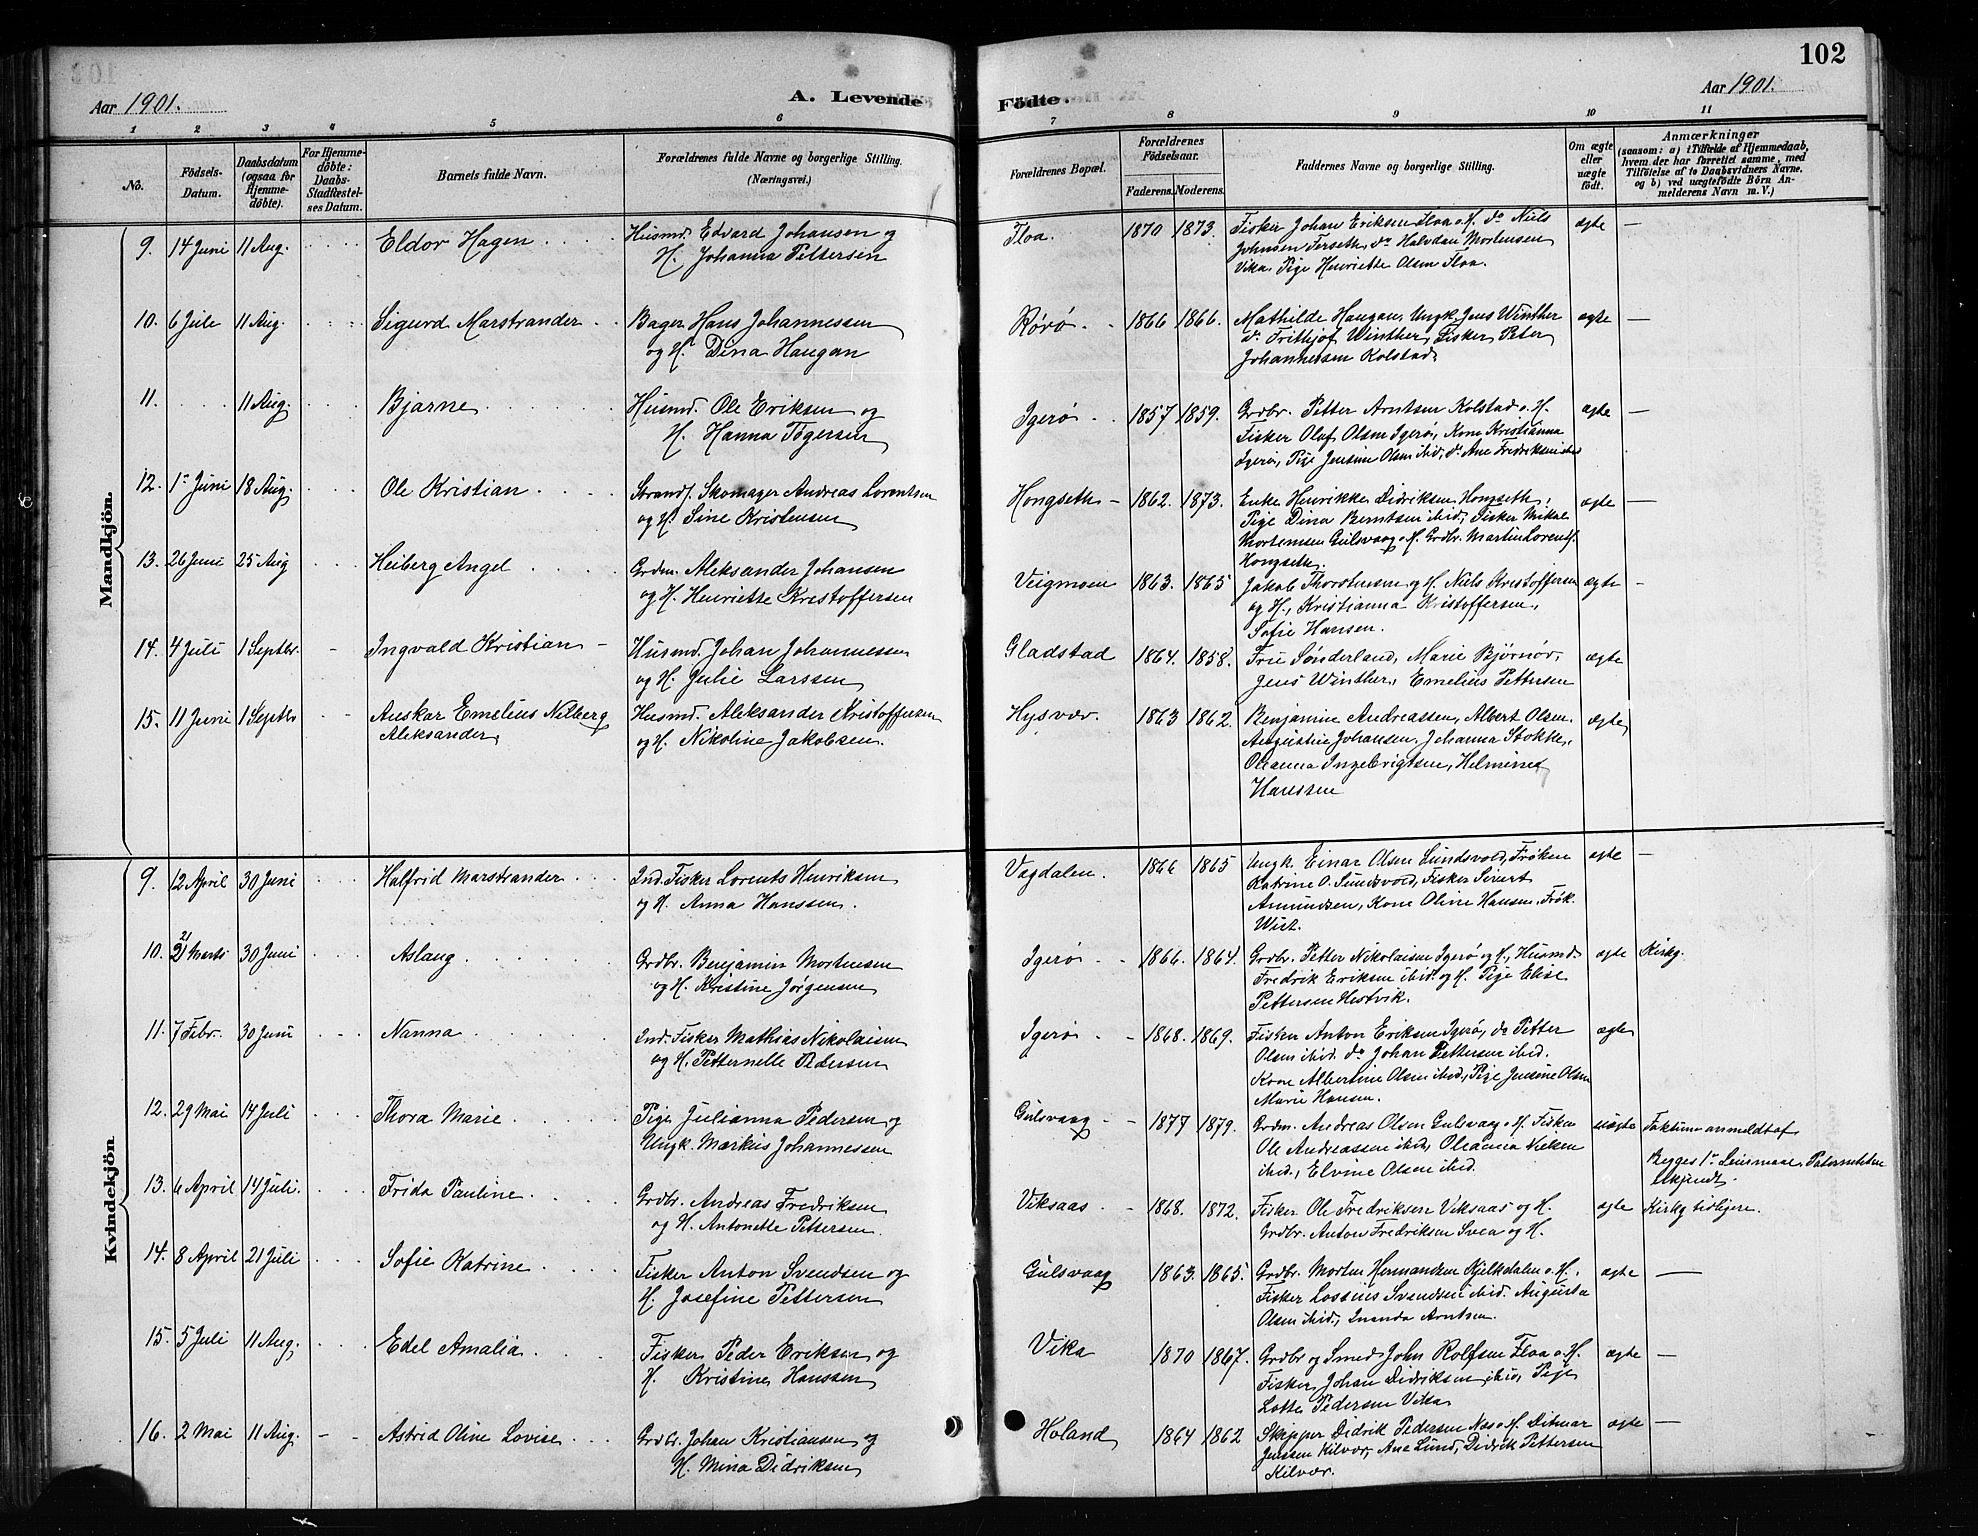 102
Aar 1901.
A. Levende Födte.
Aar 1901.
1 2 3 4 5 6 7 8 9 10 11
No.
Födsels-
Datum.
Daabsdatum
(ogsaa for
Hjemme-
döbte).
For Hjemme-
döbte:
Daabs-
Stadfæstel-
ses Datum.
Barnets fulde Navn.
Forældrenes fulde Navne og borgerlige Stilling.
(Næringsvei.)
Forældrenes Bopæl.
Forældrenes
Födselsaar.
Faderens. Moderens.
Faddernes Navne og borgerlige Stilling.
Om ægte
eller
uægte
födt.
Anmærkninger
(saasom: a) i Tilfælde af Hjemmedaab,
hvem der har forrettet samme, med
Tilföielse af to Daabsvidners Navne,
og b) ved uægtefödte Börn An-
melderens Navn m. V.)
Mandkjön.
9. 14 Juni 11 Aug. Eldor Hagen Husmd. Edvard Johansen og
H. Johanna Pettersen
Floa. 1870 1873. Fisker Johan Eriksen Floa o. H. do Niels
Johnsen Ferseth, do Halvdan Mortensen
Vika. Pige Henriette Olsen Floa.
ægte —
10. 6 Juli 11 Aug. Sigurd Marstrander Bager Hans Johannessen
og H. Dina Haugan
Rørø 1866 1866. Mathilde Haugan, Ungk. Jens Winther
do Frithjof Winther, Fisker Peter
Johannessen Kolstad.
ægte —
11. 11 Aug. Bjarne Husmd. Ole Eriksen og
H. Hanna Togersen
Igerø 1857 1859. Grdbr. Petter Arntsen Kolstad o. H.
Fisker Oluf Olsen Igerø, Kone Kristianna
Igerø, Pige Jensine Olsen ibid, do Ane Fredriksen ibid
ægte —
12. 1 Juni 18 Aug. Ole Kristian Strands. Skomager Andreas Lorentsen
og H. Sine Kristensen
Hongseth 1862. 1873. Enke Henrikke Didriksen Hongseth,
Pige Dina Berntsen ibid, Fisker Mikal
Mortensen Gulsvaag o. H. Grdbr. Martin Lorents.
Hongseth.
ægte —
13. 26 Juni 25 Aug Heiberg Angel Grdm. Aleksander Johansen
og H. Henriette Kristoffersen
Veigmoen 1863. 1865 Jakob Thorstensen og H. Niels Kristoffersen
og H., Kristianna Kristoffersen,
Sofie Hansen.
ægte —
14. 4 Juli 1 Septbr. Ingvald Kristian Husmd. Johan Johannessen
og H. Julie Larssen
Gladstad 1864. 1858. Fru Sønderland, Marie Bjørnør,
Jens Winther, Emelius Pettersen
ægte
15. 11 Juni 1 Septbr Anskar Emelius Nilberg
Aleksander
Husmd. Aleksander Kristoffersen
og H. Nikoline Jakobsen.
Hysvær. 1863 1862. Benjamine Andreassen, Albert Olsen.
Augustine Johansen, Johanna Stokke,
Oleanna Ingebrigtsen, Helmine
Hanssen
ægte
Kvindekjön.
9. 12 April 30 Juni Halfrid Marstrander Ind. Fisker Lorents Henriksen
og H. Anna Hanssen.
Vagdalen. 1866 1865 Ungk. Einar Olsen Sundsvold, Frøken
Katrine O. Sundsvold, Fisker Sivert
Amundsen, Kone Olive Hansen, Frøk.
Wist.
ægte —
10. 21 Marts 30 Juni Aslaug Grdbr. Benjamin Mortensen
og H. Kristine Jørgensen
Igerø 1866. 1864. Grdbr. Petter Nikolaisen Igerø og H., Husmd.
Fredrik Eriksen ibid og H. Pige Elise
Pettersen Hestvik.
ægte Kirkg.
11. 7 Febr. 30 Juni Nanna Ind. Fisker Mathias Nikolaisen
og H. Petternelle Pedersen
Igerø 1868. 1869. Fisker Anton Eriksen Igerø, do Petter
Olsen ibid. do Johan Pettersen ibid.
Kone Albertine Olsen ibid, Pige Jensine Olsen
Marie Hansen.
ægte
12. 29 Mai 14 Juli Thora Marie Pige Julianna Pedersen og
Ungk. Markus Johannessen
Gulsvaag 1877 1879. Grdm. Andreas Olsen Gulsvaag o. H. Fisker
Ole Andreassen ibid, Oleanna Nielsen
ibid, Elvine Olsen ibid.
uægte Faktum anmeldt af
Begges 1ste Leiermaal. Paterniteten
erkjendt.
13. 6 April 14 Juli. Frida Pauline Grdbr. Andreas Fredriksen
og H. Antonette Pettersen
Viksaas 1868. 1872. Fisker Ole Fredriksen Viksaas og H.
Grdbr. Anton Fredriksen Svea og H.
ægte Kirkg tidligere.
14. 8 April 21 Juli Sofie Katrine Fisker Anton Svendsen og
H. Josefine Pettersen
Gulsvaag 1863. 1865. Grdbr. Morten Hermandsen Kjelkdalen o. H.
Fisker Lossius Svendsen ibid. Augusta
Olsen ibid, Inanda Arntsen.
ægte —
15. 5 Juli 11 Aug. Edel Amalia Fisker Peder Eriksen og
H. Kristine Hanssen
Vika 1870 1867. Grdbr og Smed John Rolfsen Floa o. H.
Fisker Johan Didriksen ibid, Pige
Lotte Pedersen Vika
ægte —
16. 2 Mai 11 Aug. Astrid Oline Lovise Grdbr. Johan Kristiansen og
H. Mina Didriksen
Høland 1864 1862 Skipper Didrik Pedersen Næs o. H. Ditmar
Jenssen Kilvær, Ane Lund, Didrik Pettersen
Kilvær.
ægte —